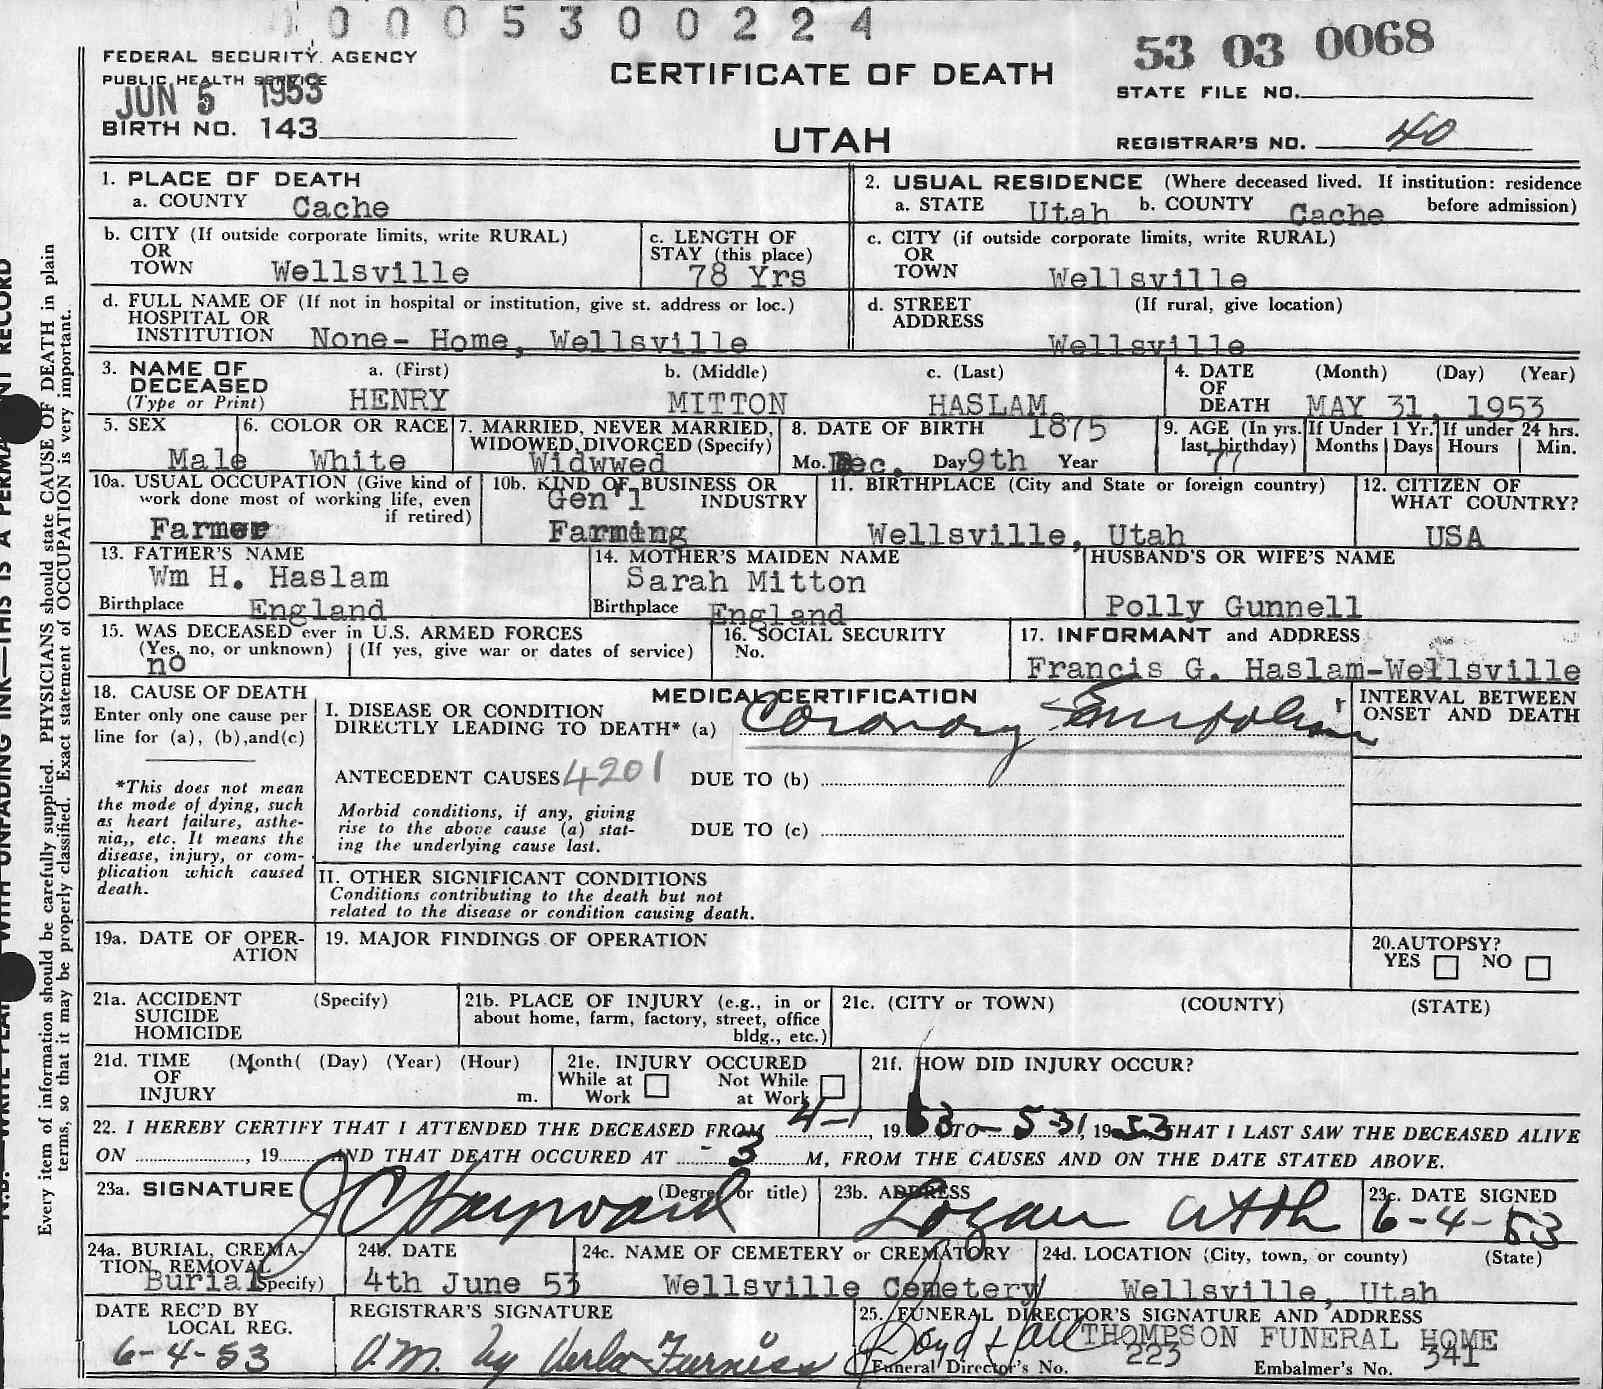 0 0 0 5 3 0 0 2 2 4
53 03 0068
FEDERAL SECURITY AGENCY
PUBLIC HEALTH SERVICE
JUN 5 1953
BIRTH NO. 143
CERTIFICATE OF DEATH
UTAH
STATE FILE NO.
REGISTRAR'S NO. 40
1. PLACE OF DEATH
a. COUNTY Cache
2. USUAL RESIDENCE (Where deceased lived. If institution: residence
a. STATE Utah b. COUNTY Cache before admission)
b. CITY (If outside corporate limits, write RURAL)
OR
TOWN Wellsville
c. LENGTH OF
STAY (this place)
78 Yrs
c. CITY (if outside corporate limits, write RURAL)
OR
TOWN Wellsville
d. FULL NAME OF (If not in hospital or institution, give st. address or loc.)
HOSPITAL OR
INSTITUTION None- Home, Wellsville
d. STREET (If rural, give location)
ADDRESS
Wellsville
3. NAME OF a. (First) b. (Middle) c. (Last)
DECEASED
(Type or Print) HENRY MITTON HASLAM
4. DATE (Month) (Day) (Year)
OF
DEATH MAY 31, 1953
5. SEX
Male
6. COLOR OR RACE
White
7. MARRIED, NEVER MARRIED,
WIDOWED, DIVORCED (Specify)
Widwwed
8. DATE OF BIRTH 1875
Mo. Dec. Day 9th Year
9. AGE (In yrs.
last birthday)
77
If Under 1 Yr.
Months Days
If under 24 hrs.
Hours Min.
10a. USUAL OCCUPATION (Give kind of
work done most of working life, even
if retired)
Farmer
10b. KIND OF BUSINESS OR
Gen'l INDUSTRY
Farming
11. BIRTHPLACE (City and State or foreign country)
Wellsville, Utah
12. CITIZEN OF
WHAT COUNTRY?
USA
13. FATHER'S NAME
Wm H. Haslam
Birthplace England
14. MOTHER'S MAIDEN NAME
Sarah Mitton
Birthplace England
HUSBAND'S OR WIFE'S NAME
Polly Gunnell
15. WAS DECEASED ever in U.S. ARMED FORCES
(Yes, no, or unknown) (If yes, give war or dates of service)
no
16. SOCIAL SECURITY
No.
17. INFORMANT and ADDRESS
Francis G. Haslam-Wellsville
18. CAUSE OF DEATH
Enter only one cause per
line for (a), (b), and (c)
*This does not mean
the mode of dying, such
as heart failure, asthe-
nia,, etc. It means the
disease, injury, or com-
plication which caused
death.
MEDICAL CERTIFICATION
I. DISEASE OR CONDITION
DIRECTLY LEADING TO DEATH* (a) Coronary
INTERVAL BETWEEN
ONSET AND DEATH
ANTECEDENT CAUSES 4201 DUE TO (b)
Morbid conditions, if any, giving
rise to the above cause (a) stat-
ing the underlying cause last.
DUE TO (c)
II. OTHER SIGNIFICANT CONDITIONS
Conditions contributing to the death but not
related to the disease or condition causing death.
19a. DATE OF OPER-
ATION
19. MAJOR FINDINGS OF OPERATION
20. AUTOPSY?
YES NO
21a. ACCIDENT (Specify)
SUICIDE
HOMICIDE
21b. PLACE OF INJURY (e.g., in or
about home, farm, factory, street, office
bldg., etc.)
21c. (CITY or TOWN) (COUNTY) (STATE)
21d. TIME (Month( (Day) (Year) (Hour)
OF
INJURY m.
21e. INJURY OCCURED
While at Not While
Work at Work
21f. HOW DID INJURY OCCUR?
22. I HEREBY CERTIFY THAT I ATTENDED THE DECEASED FROM 4-1, 1953 TO 5-31, 1953 THAT I LAST SAW THE DECEASED ALIVE
ON , 19 AND THAT DEATH OCCURED AT 3 M, FROM THE CAUSES AND ON THE DATE STATED ABOVE.
23a. SIGNATURE (Degree or title)
J C Hayward
23b. ADDRESS
Logan Utah
23c. DATE SIGNED
6-4-53
24a. BURIAL, CREMA-
TION, REMOVAL
Burial (Specify)
24b. DATE
4th June 53
24c. NAME OF CEMETERY or CREMATORY
Wellsville Cemetery
24d. LOCATION (City, town, or county) (State)
Wellsville, Utah
DATE REC'D BY
LOCAL REG.
6-4-53
REGISTRAR'S SIGNATURE
O.M. by Verla Furniss
25. FUNERAL DIRECTOR'S SIGNATURE AND ADDRESS
THOMPSON FUNERAL HOME
Funeral Director's No. 223 Embalmer's No. 341
Every item of information should be carefully supplied. PHYSICIANS should state CAUSE OF DEATH in plain
terms, so that it may be properly classified. Exact statement of OCCUPATION is very important.